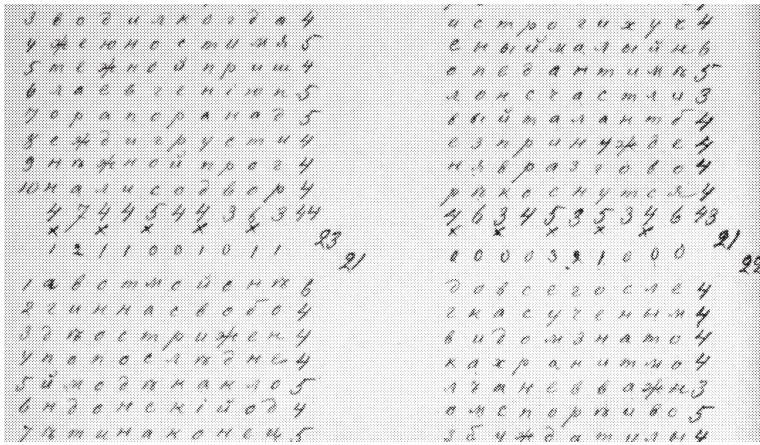 3 в о д и л к о г д а 4
4 ж е ю н о с т и м я 5
5 т е ж н о й п р и ш 4
6 л а е в г е н і ю п 5
7 о р а п о р а н а д 5
8 е ж д и г р у с т и 4
9 н ѣ ж н о й п р о г 4
10 н а л и с о д в о р 4
4 7 4 4 5 4 4 3 6 3 44
x x x x x
1 2 1 1 0 0 1 0 1 1 23
21
1 а в о т м о й о н ѣ 6
2 г и н н а с в о б о 4
3 д ѣ о с т р и ж е н 4
4 п о п о с л ѣ д н е 4
5 й м о д ѣ к а к л о 5
6 н д о н с к і й о д 4
7 ѣ т и н а к о н е ц 5
и с т р о г и х у ч 4
е н ы й м а л ы й н 6
о п е д а н т и м ѣ 5
л о н с ч а с т л и 3
в ы й т а л а н т б 4
е з п р и н у ж д е 4
н я в р а з г о в о 4
р ѣ к о с н у т с я 4
4 6 3 4 5 3 5 3 4 6 43
x x x x x
0 0 0 0 3 2 1 0 0 0 21
22
д о в с е г о с л е 4
г к а с у ч е н ы м 4
в и д о м з н а т о 4
к а х р а н и т м о 4
л ч а н е в в а ж н 3
о м с п о р ѣ и в о 5
з б у ж д а т у л ы 4